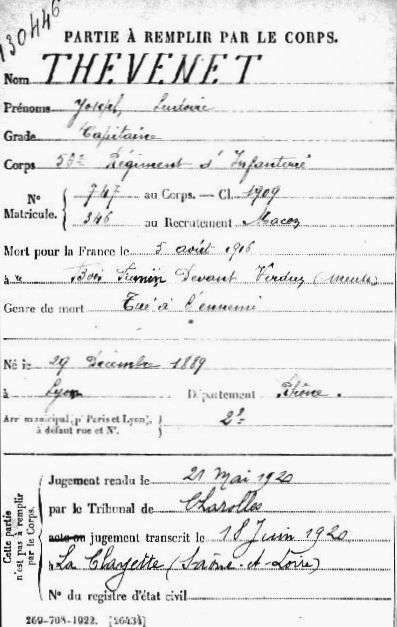 130446
PARTIE À REMPLIR PAR LE CORPS.
Nom THEVENET
Prénoms Joseph,
Grade Capitaine
Corps 53e Régiment d'Infanterie
N° Matricule. { 747 au Corps. — Cl. 1909
346 au Recrutement Macon
Mort pour la France le 5 août 1916
à Bois Fumin Devant Verdun (Meuse)
Genre de mort Tué à l'ennemi
Né le 29 Décembre 1889
à Lyon Département Rhône.
Arr municipal (pr Paris et Lyon), à défaut rue et N°. } 2e
Cette partie n'est pas à remplir par le Corps.
Jugement rendu le 21 Mai 1920
par le Tribunal de Charolles
acte ou jugement transcrit le 18 Juin 1920
à La Clayette (Saône-et-Loire)
N° du registre d'état civil
269-708-1922. [26434]